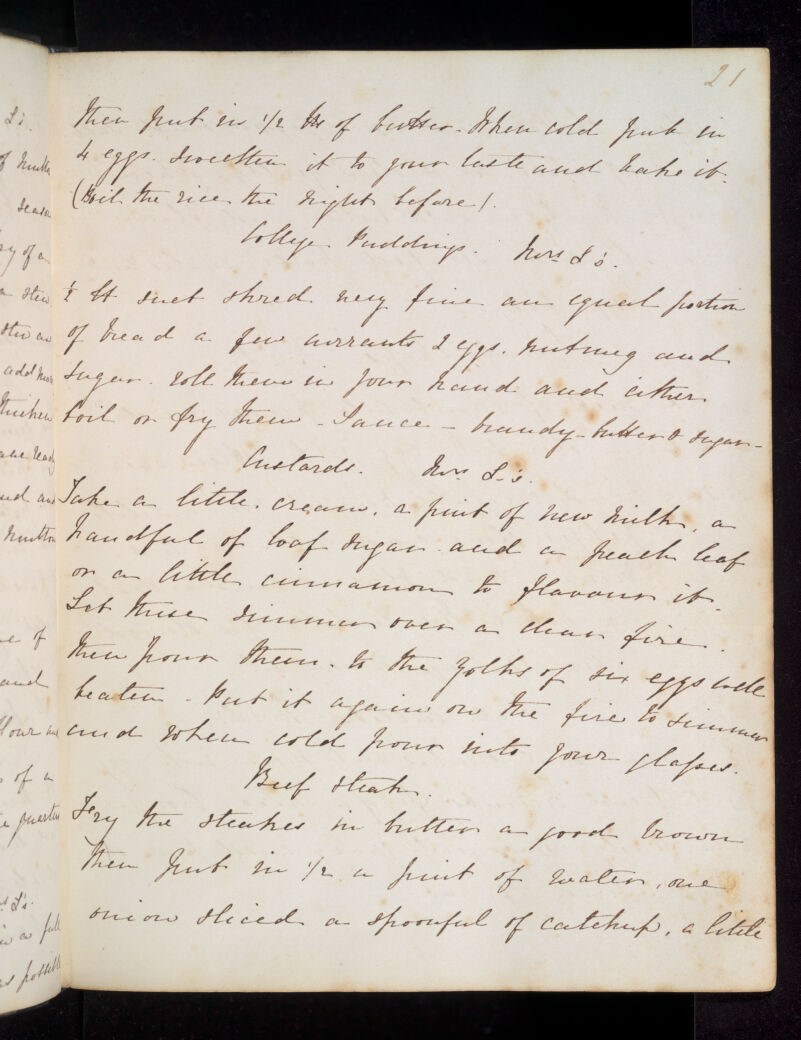 21
then put in 1/2 lb of butter. When cold put in
4 eggs. sweeten it to your taste and bake it.
(Boil the rice the night before).
College Puddings. Mrs L's.
1/2 lb suet shred very fine an equal portion
of bread a few currants 2 eggs. nutmeg and
sugar. roll them in your hand and either
boil or fry them - Sauce - brandy - butter & sugar -
Custards. Mrs L's.
Take a little cream, a pint of new milk, a
handful of loaf sugar and a peach leaf
or a little cinnamon to flavour it.
Let these simmer over a clear fire.
then pour them to the yolks of six eggs well
beaten. Put it again on the fire to simmer
and when cold pour into your glasses.
Beef steak.
Fry the steakes in butter a good brown
then put in 1/2 a pint of water, one
onion sliced a spoonful of catchup, a little